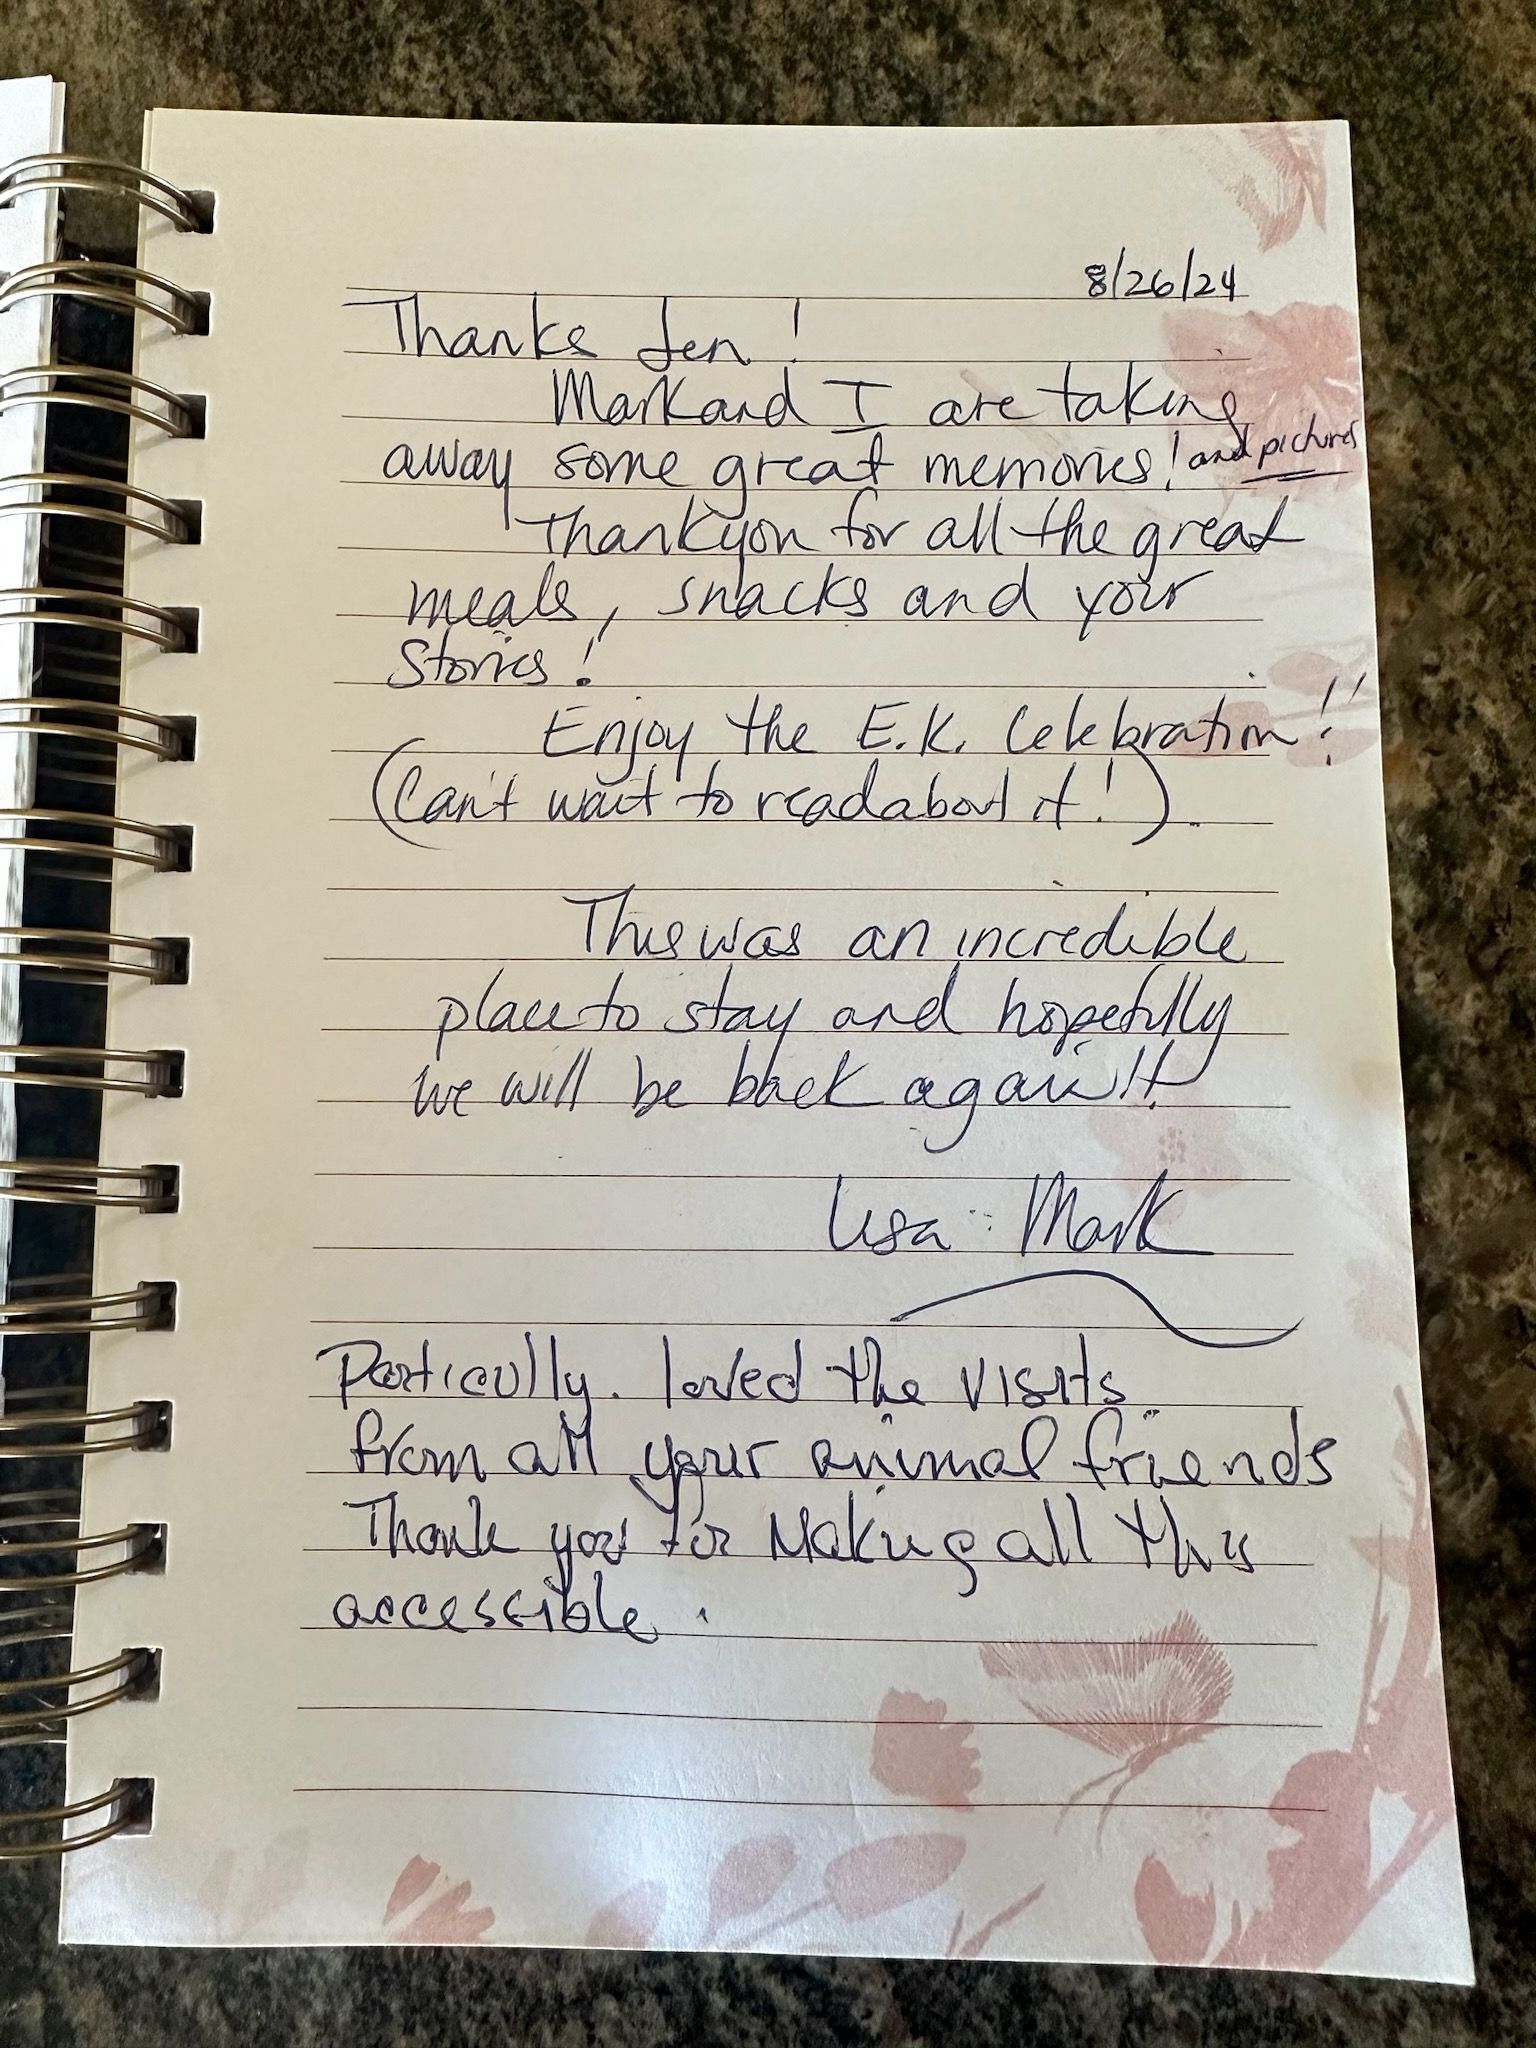 8/26/24
Thanks Jen!
Mark and I are taking
away some great memories! and pictures
Thank you for all the great
meals, snacks and your
Stories!
Enjoy the E.K. Celebration!!
(Can't wait to read about it!).
This was an incredible
place to stay and hopefully
we will be back again!!
Lisa :: Mark
Particully. loved the visits
from all your animal friends
Thank you for Making all this
accessible.